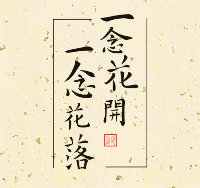 一念花開
一念花落